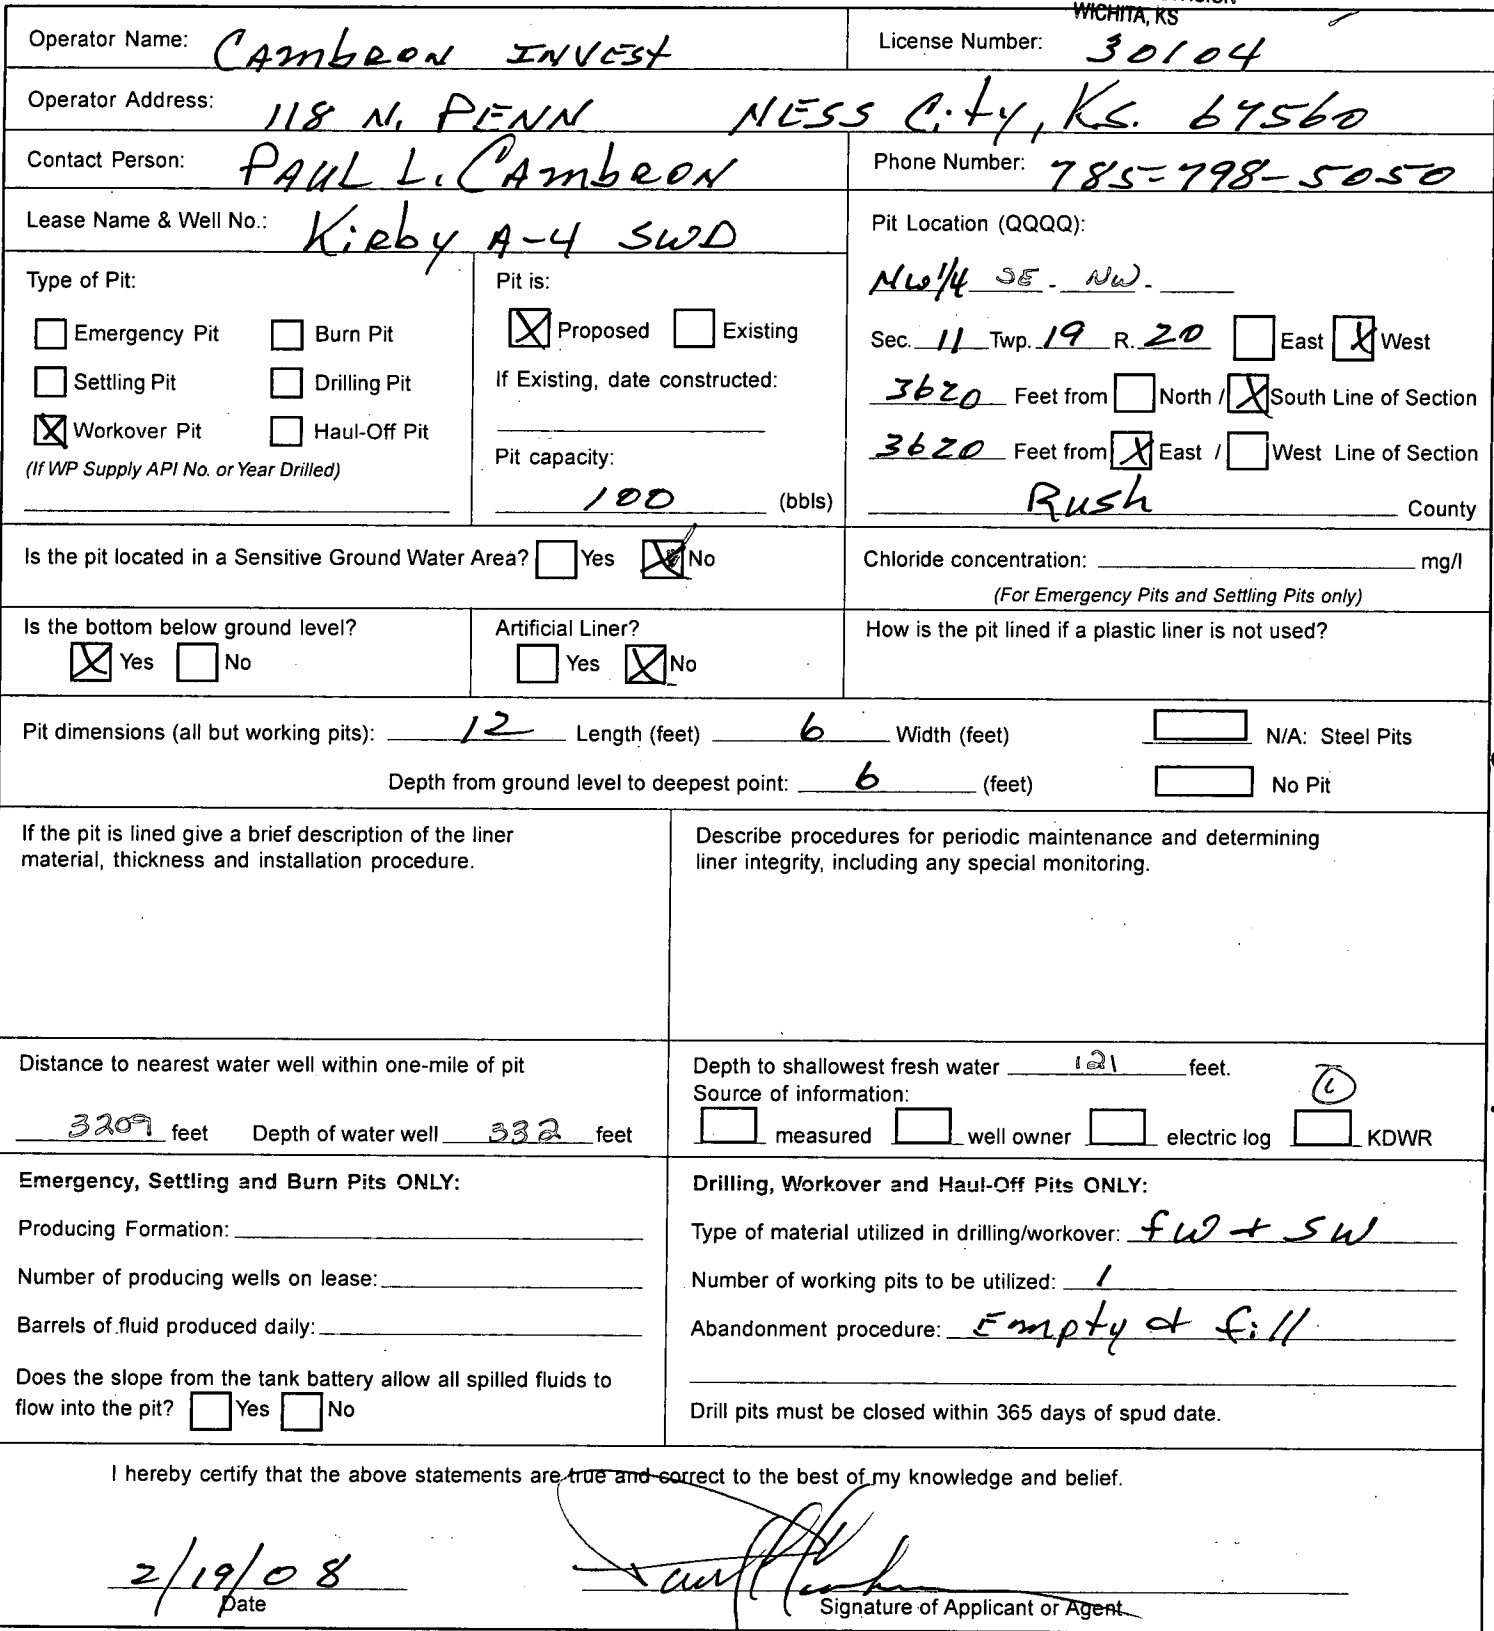 WICHITA, KS
Operator Name: CAMBRON INVEST License Number: 30104
Operator Address: 118 N. PENN NESS City, KS. 67560
Contact Person: PAUL L. CAMBRON Phone Number: 785-798-5050
Lease Name & Well No.: Kirby A-4 SWD Pit Location (QQQQ):
NW 1/4 SE - NW -
Type of Pit: Pit is:
Emergency Pit Burn Pit X Proposed Existing Sec. 11 Twp. 19 R. 20 East X West
Settling Pit Drilling Pit If Existing, date constructed: 3620 Feet from North / X South Line of Section
X Workover Pit Haul-Off Pit 3620 Feet from X East / West Line of Section
(If WP Supply API No. or Year Drilled) Pit capacity:
100 (bbls) Rush County
Is the pit located in a Sensitive Ground Water Area? Yes X No Chloride concentration: mg/l
(For Emergency Pits and Settling Pits only)
Is the bottom below ground level? Artificial Liner? How is the pit lined if a plastic liner is not used?
X Yes No Yes X No
Pit dimensions (all but working pits): 12 Length (feet) 6 Width (feet) N/A: Steel Pits
Depth from ground level to deepest point: 6 (feet) No Pit
If the pit is lined give a brief description of the liner
material, thickness and installation procedure.
Describe procedures for periodic maintenance and determining
liner integrity, including any special monitoring.
Distance to nearest water well within one-mile of pit
3209 feet Depth of water well 332 feet
Depth to shallowest fresh water 121 feet.
Source of information:
measured well owner electric log KDWR
Emergency, Settling and Burn Pits ONLY:
Producing Formation:
Number of producing wells on lease:
Barrels of fluid produced daily:
Does the slope from the tank battery allow all spilled fluids to
flow into the pit? Yes No
Drilling, Workover and Haul-Off Pits ONLY:
Type of material utilized in drilling/workover: fw + sw
Number of working pits to be utilized: 1
Abandonment procedure: Empty & fill
Drill pits must be closed within 365 days of spud date.
I hereby certify that the above statements are true and correct to the best of my knowledge and belief.
2/19/08
Date Signature of Applicant or Agent